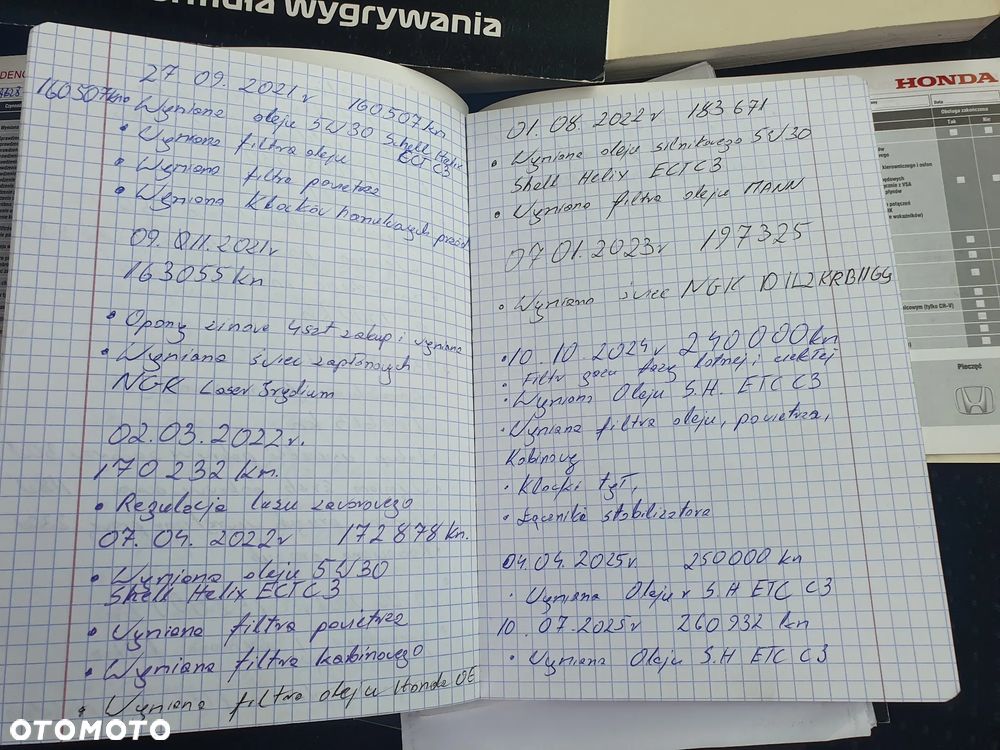 Wygrywania
27 09. 2021r 160507 km
160507km
• Wymiana oleju 5W30 Shell Helix
ECT C3
• Wymiana filtra oleju
• Wymiana filtra powietrza
• Wymiana klocków hamulcowych przód
09. 2021r
163055 km
• Opony zimowe 4szt zakup i wymiana
• Wymiana świec zapłonowych
NGK Laser Irydium
02.03.2022r.
170 232 km.
• Regulacja luzu zaworowego
07. 04. 2022r 172 878 km.
• Wymiana oleju 5W30
Shell Helix ECT C3
• Wymiana filtra powietrza
• Wymiana filtra kabinowego
• Wymiana filtra oleju Honda OE
01. 08. 2022r 183 671
• Wymiana oleju silnikowego 5W30
Shell Helix ECT C3
• Wymiana filtra oleju MANN
07.01.2023r 197325
• Wymiana świec NGK
• 10. 10. 2024r 240 000 km
• Filtr gazu fazy lotnej i ciekłej
• Wymiana Oleju S.H. ETC C3
• Wymiana filtra oleju, powietrza,
Kabinowy
• Klocki tył,
• Łącznik stabilizatora
04.04.2025r 250000 km
• Wymiana Oleju S.H ETC C3
10.07.2025r 260932 km
• Wymiana Oleju S.H ETC C3
HONDA
Data
Obsługa zakończona
Tak Nie
kierowniczego i osłon
z VSA
płynów
połączeń
wskaźników)
(tylko CR-V)
Pieczęć
OTOMOTO